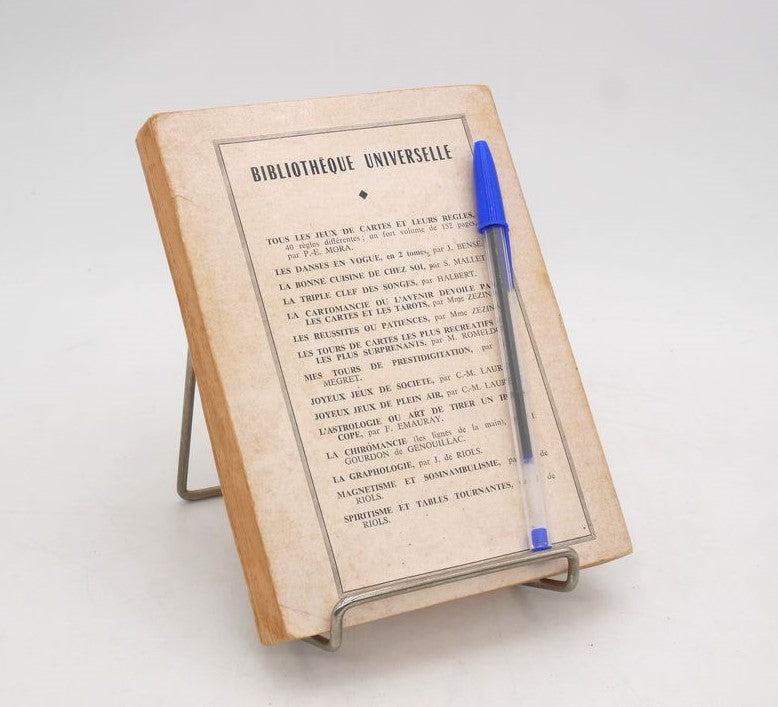 BIBLIOTHÈQUE UNIVERSELLE
TOUS LES JEUX DE CARTES ET LEURS REGLES,
40 règles différentes; un fort volume de 152 pages,
par P.-E. MORA.
LES DANSES EN VOGUE, en 2 tomes, par J. BENSE
LA BONNE CUISINE DE CHEZ SOI, par S. MALLET
LA TRIPLE CLEF DES SONGES, par HALBERT.
LA CARTOMANCIE OU L'AVENIR DEVOILE PA
LES CARTES ET LES TAROTS, par Mme ZEZIN
LES REUSSITES OU PATIENCES, par Mme ZEZIN
LES TOURS DE CARTES LES PLUS RECREATIFS,
LES PLUS SURPRENANTS, par M. ROMELD
MES TOURS DE PRESTIDIGITATION, par
MEGRET.
JOYEUX JEUX DE SOCIETE, par C.-M. LAUR
JOYEUX JEUX DE PLEIN AIR, par C.-M. LAUR
L'ASTROLOGIE OU ART DE TIRER UN H
COPE, par F. EMAURAY.
LA CHIROMANCIE (les lignes de la main), I.
GOURDON de GENOUILLAC.
LA GRAPHOLOGIE, par J. de RIOLS.
MAGNETISME ET SOMNAMBULISME, pa de
RIOLS.
SPIRITISME ET TABLES TOURNANTES, de
RIOLS.